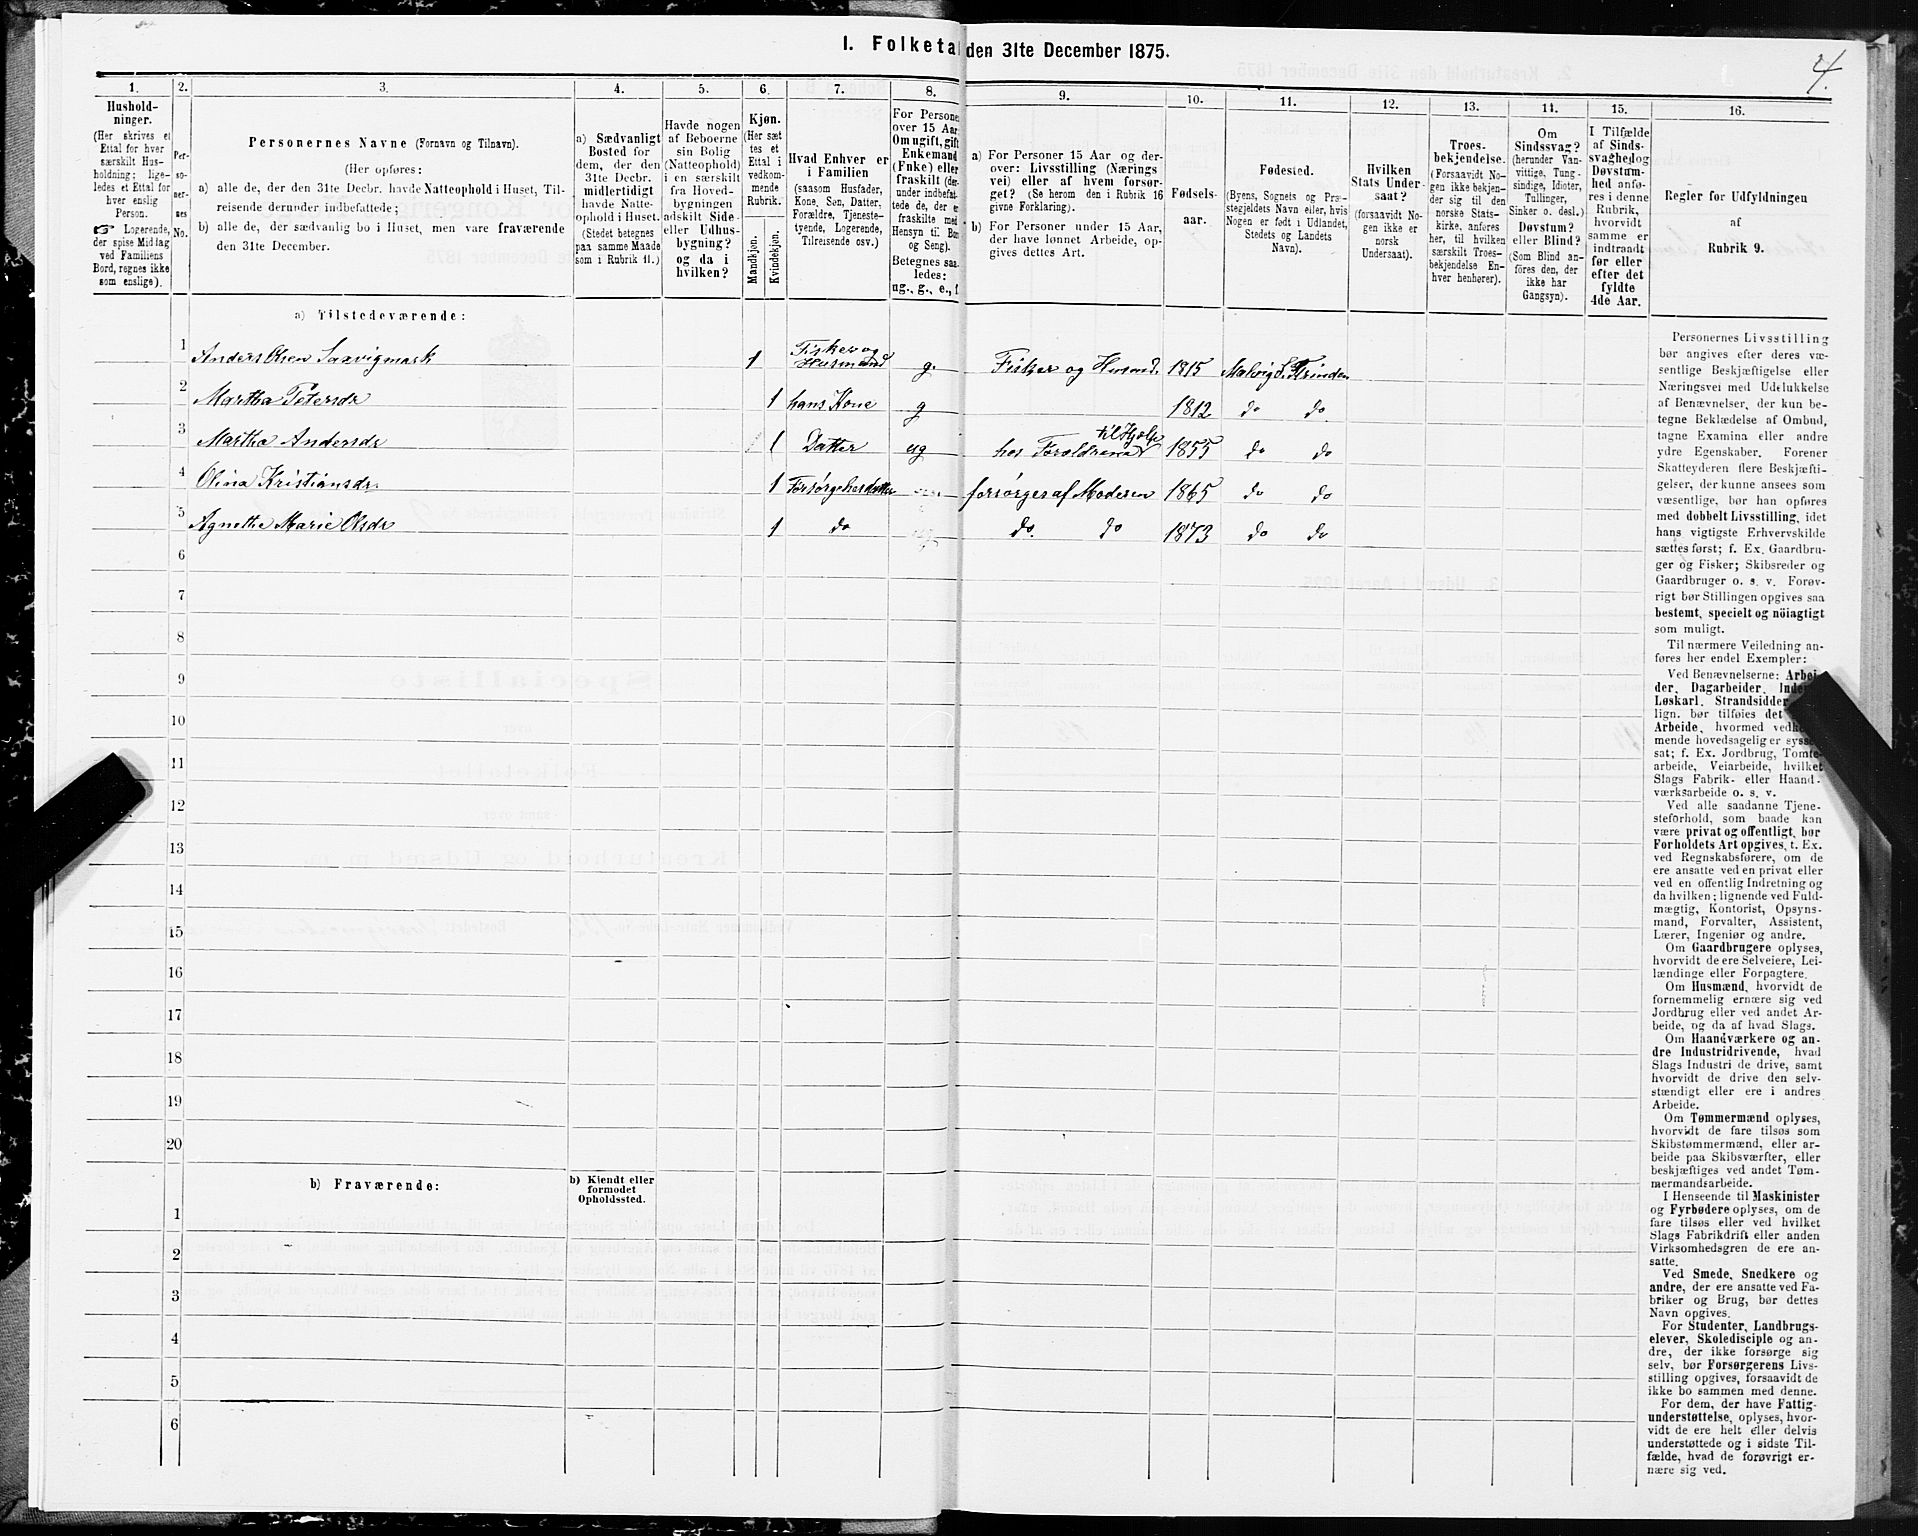 I. Folketa den 31te December 1875.
4.
1.
2.
3.
4.
5.
6.
7.
8.
9.
10.
11.
12.
13.
14.
15.
16.
Hushold-
ninger.
(Her skrives et
Ettal for hver
særskilt Hus-
holdning; lige-
ledes et Ettal for
hver enslig
Person.
☞ Logerende,
der spise Middag
ved Familiens
Bord, regnes ikke
som enslige).
Per-
so-
ner-
nes
No.
Personernes Navne (Fornavn og Tilnavn).
(Her opføres:
a) alle de, der den 31te Decbr. havde Natteophold i Huset, Til-
reisende derunder indbefattede;
b) alle de, der sædvanlig bo i Huset, men vare fraværende
den 31te December.
a) Sædvanligt
Bosted for
dem, der den
31te Decbr.
midlertidigt
havde Natte-
ophold i Huset.
(Stedet betegnes
paa samme Maade
som i Rubrik 11.)
Havde nogen
af Beboerne
sin Bolig
(Natteophold)
i en særskilt
fra Hoved-
bygningen
adskilt Side-
eller Udhus-
bygning?
og da i
hvilken?
Kjøn.
(Her sæt
tes et
Ettal i
vedkom-
mende
Rubrik.
Mandkjøn.
Kvindekjøn.
Hvad Enhver er
i Familien
(saasom Husfader,
Kone, Søn, Datter,
Forældre, Tjeneste-
tyende, Logerende,
Tilreisende osv.)
For Persone
over 15 Aar
Om ugift, gift
Enkemand
(Enke) eller
fraskilt (der-
under indbefat-
tede de, der er
fraskilte med
Hensyn til Bo
og Seng).
Betegnes saa-
ledes:
ug., g., e., f.
a) For Personer 15 Aar og der-
over: Livsstilling (Nærings
vei) eller af hvem forsør-
get? (Se herom den i Rubrik 16
givne Forklaring).
b) For Personer under 15 Aar,
der have lønnet Arbeide, op-
gives dettes Art.
Fødsels-
aar.
Fødested.
(Byens, Sognets og Præ-
stegjeldets Navn eller, hvis
Nogen er født i Udlandet,
Stedets og Landets
Navn).
Hvilken
Stats Under-
saat?
(forsaavidt No-
gen ikke er
norsk
Undersaat).
Troes-
bekjendelse.
(Forsaavidt No-
gen ikke bekjen-
der sig til den
norske Stats-
kirke, anføres
her, til hvilken
særskilt Troes-
bekjendelse En-
hver henhører).
Om
Sindssvag?
(herunder Van-
vittige, Tung-
sindige, Idioter,
Tullinger,
Sinker o. desl.)
Døvstum?
eller Blind?
(Som Blind an-
føres den, der
ikke har
Gangsyn).
I Tilfælde
af Sinds-
svaghed og
Døvstum-
hed anfø-
res i denne
Rubrik,
hvorvidt
samme er
indtraadt
før eller
efter det
fyldte
4de Aar.
Regler for Udfyldningen
af
Rubrik 9.
a) Tilstedeværende:
1 Anders Olsen Saxvigmark 1 Fisker og Husmand g. Fisker og Husmd. 1815 Malvig S. Strinden
2 Martha Petersdr 1 hans Kone g 1812 do do.
3 Martha Andersdr 1 Datter ug hos Foroldrene til Hjelp 1855 do do
4 Olina Kristiansdr. 1 forsørges af Moderen 1865 do do
5 Agnethe Marie Olsdr 1 do do. do 1873 do do
6
7
8
9
10
11
12
13
14
15
16
17
18
19
20
b) Fraværende:
b) Kjendt eller
formodet
Opholdssted.
1
2
3
4
5
6
Personernes Livsstilling
bør angives efter deres væ-
sentlige Beskjæftigelse eller
Næringsvei med Udelukkelse
af Benævnelser, der kun be-
tegne Beklædelse af Ombud,
tagne Examina eller andre
ydre Egenskaber. Forener
Skatteyderen flere Beskjæfti-
gelser, der kunne ansees som
væsentlige, bør han opføres
med dobbelt Livsstilling, idet
hans vigtigste Erhvervskilde
sættes først; f. Ex. Gaardbru-
ger og Fisker; Skibsreder og
Gaardbruger o. s. v. Forøv-
rigt bør Stillingen opgives saa
bestemt, specielt og nöiagtigt
som muligt.
Til nærmere Veiledning an-
føres her endel Exempler:
Ved Benævnelserne: Arbei-
der, Dagarbeider, Inder
Løskarl, Strandsidder
lign. bør tilføies det
Arbeide, hvormed vedkom-
mende hovedsagelig er syssel
sat; f. Ex. Jordbrug, Tomte-
arbeide, Veiarbeide, hvilket
Slags Fabrik- eller Haand-
værksarbeide o. s. v.
Ved alle saadanne Tjene-
steforhold, som baade kan
være privat og offentligt, bør
Forholdets Art opgives, t. Ex.
ved Regnskabsførere, om de
ere ansatte ved en privat eller
ved en offentlig Indretning og
da hvilken; lignende ved Fuld-
mægtig, Kontorist, Opsyns-
mand, Forvalter, Assistent,
Lærer, Ingeniør og andre.
Om Gaardbrugere oplyses,
hvorvidt de ere Selveiere, Lei-
lændinge eller Forpagtere.
Om Husmænd, hvorvidt de
fornemmelig ernære sig ved
Jordbrug eller ved andet Ar-
beide, og da af hvad Slags.
Om Haandværkere og an-
dre Industridrivende, hvad
Slags Industri de drive, samt
hvorvidt de drive den selv-
stændigt eller ere i andres
Arbeide.
Om Tømmermænd oplyses,
hvorvidt de fare tilsøs som
Skibstømmermænd, eller ar-
beide paa Skibsværfter, eller
beskjæftiges ved andet Tøm-
mermandsarbeide.
I Henseende til Maskinister
og Fyrbødere oplyses, om de
fare tilsøs eller ved hvilket
Slags Fabrikdrift eller anden
Virksomhedsgren de ere an-
satte.
Ved Smede, Snedkere og
andre, der ere ansatte ved Fa-
briker og Brug, bør dettes
Navn opgives.
For Studenter, Landbrugs-
elever, Skoledisciple og an-
dre, der ikke forsørge sig
selv, bør Forsørgerens Livs-
stilling opgives, forsaavidt de
ikke bo sammen med denne.
For dem, der have Fattig-
understøttelse, oplyses, hvor-
vidt de ere helt eller delvis
understøttede og i sidste Til-
fælde, hvad de forøvrigt er-
nære sig ved.